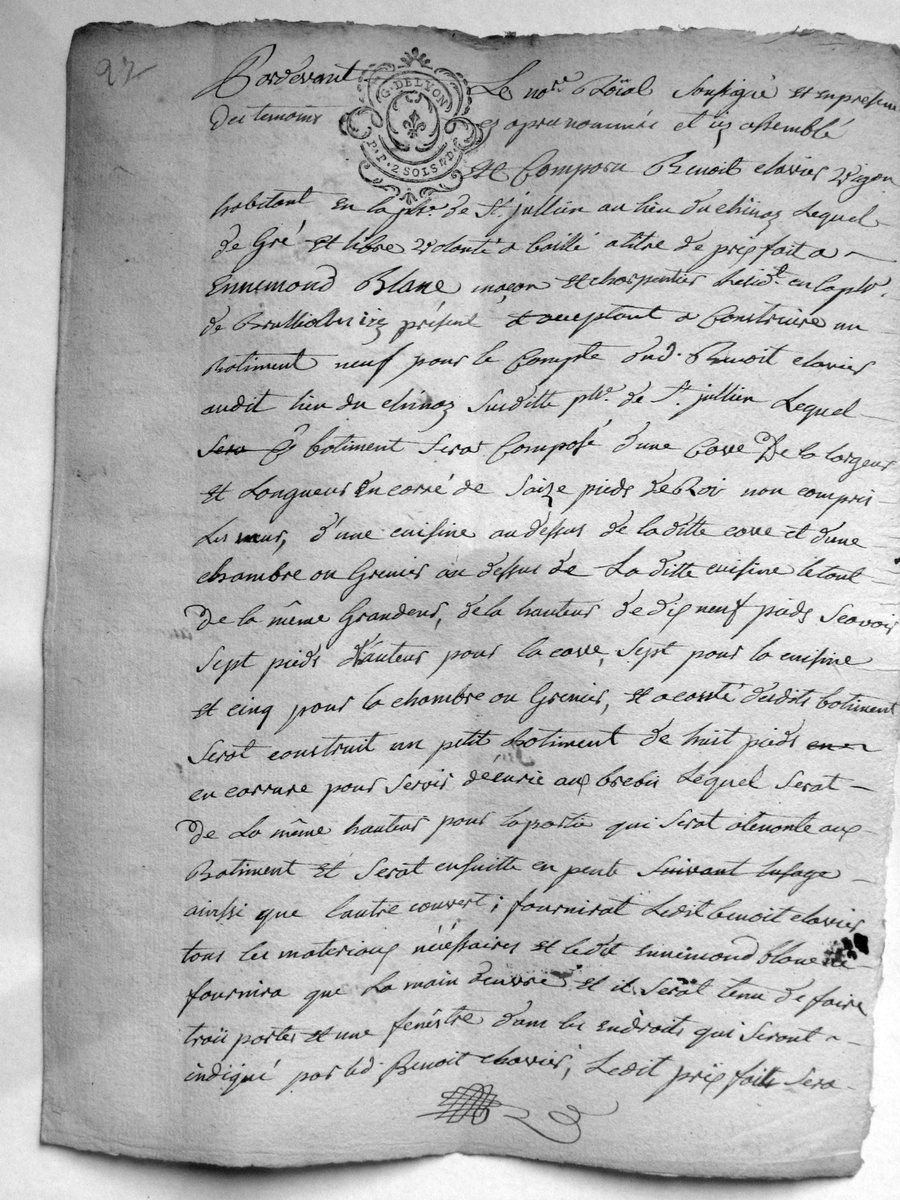 27
Pardevant Le nore Roïal soussigné et en presence
G. DE LYON
P.P. 2 SOLS 4 D.
des temoins cy apres nommés et icy assemblé
Est Comparu Benoit clavier
habitant En la psse de St jullien au lieu du chinaz Lequel
de Gré Et libre volonté a baillé a titre de prix fait a
Ennemond Blanc maçon et charpentier resid.t en la psse
de icy présent et acceptant a Construire un
Batiment neuf pour le Compte dud. Benoit clavier
audit lieu du chinaz Susditte psse de St jullien Lequel
Sera Cy batiment Serat Composé d'une Cave De la largeur
et Longueur En carré de Saize pieds de Roi non compris
Les murs, d'une cuisine au dessus de la ditte cave et d'une
chambre ou Grenier au dessus de La ditte cuisine le tout
De la même Grandeur, de la hauteur de dix neuf pieds Scavoir
Sept pieds d'hauteur pour la cave, Sept pour la cuisine
et cinq pour la chambre ou Grenier, et a costé desdits batiment
Serat construit un petit batiment de huit pieds en
en carrure pour Servir decurie aux brebis Lequel Serat
De La même hauteur pour la partie qui Serat atenante aux
Batiment et Serat ensuitte en pente Suivant lusage
ainsi que l'autre couvert; fournirat Ledit benoit clavier
tous les materiaux nécéssaires et ledit Ennemond blanc ne
fournira que La main dœuvre et il Serat tenu de faire
trois portes et une fenêtre dans les endroits qui Seront
indiqué par led. Benoit clavier; Ledit prix fait Sera